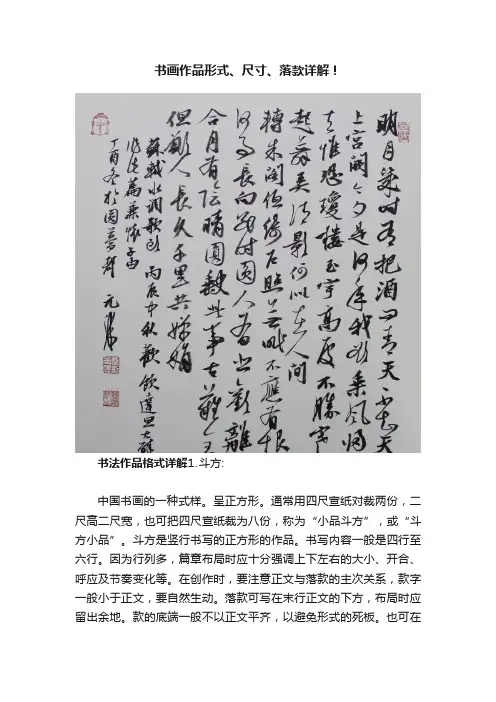 书画作品形式、尺寸、落款详解！
明月幾时有把酒问青天不知天
上宫阙今夕是何年我欲乘风归
去惟恐琼楼玉宇高处不胜寒
起舞弄清影何似在人间
转朱阁低绮户照无眠不應有恨
何事長向别时圆人有悲欢離
合月有阴晴圆缺此事古難全
但願人長久千里共婵娟
蘇軾水调歌头 丙辰中秋歡飲達旦大醉
作此篇兼怀子由
丁酉冬於圆夢轩 元
书法作品格式详解1.斗方:
中国书画的一种式样。呈正方形。通常用四尺宣纸对裁两份，二
尺高二尺宽，也可把四尺宣纸裁为八份，称为“小品斗方”，或“斗
方小品”。斗方是竖行书写的正方形的作品。书写内容一般是四行至
六行。因为行列多，篇章布局时应十分强调上下左右的大小、开合、
呼应及节奏变化等。在创作时，要注意正文与落款的主次关系，款字
一般小于正文，要自然生动。落款可写在末行正文的下方，布局时应
留出余地。款的底端一般不以正文平齐，以避免形式的死板。也可在